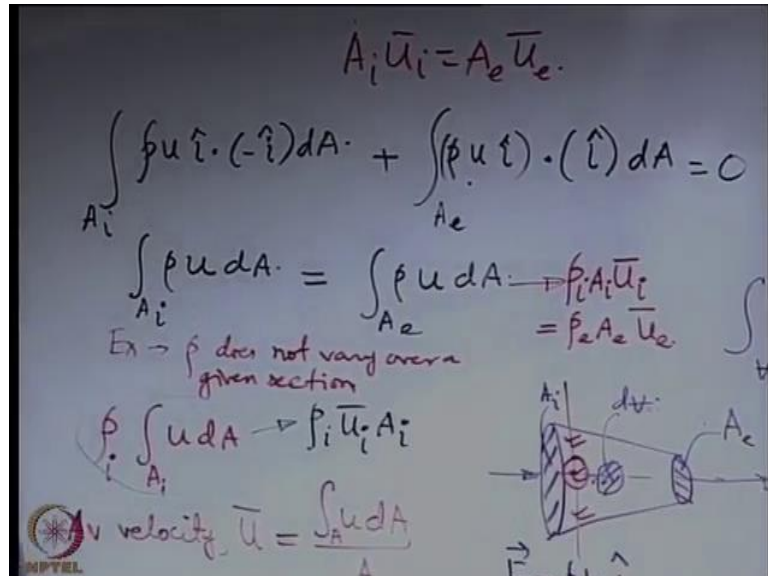 A_i ū_i = A_e ū_e.
∫_{A_i} ρ u î · (-î) dA · + ∫_{A_e} (ρ u î) · (î) dA = 0
∫_{A_i} ρ u dA · = ∫_{A_e} ρ u dA · → ρ_i A_i ū_i
= ρ_e A_e ū_e.
Ex → ρ does not vary over a
given section
ρ_i ∫_{A_i} u dA → ρ_i ū_i A_i
A_i dV A_e
Av velocity, ū = ∫_A u dA / A
NPTEL